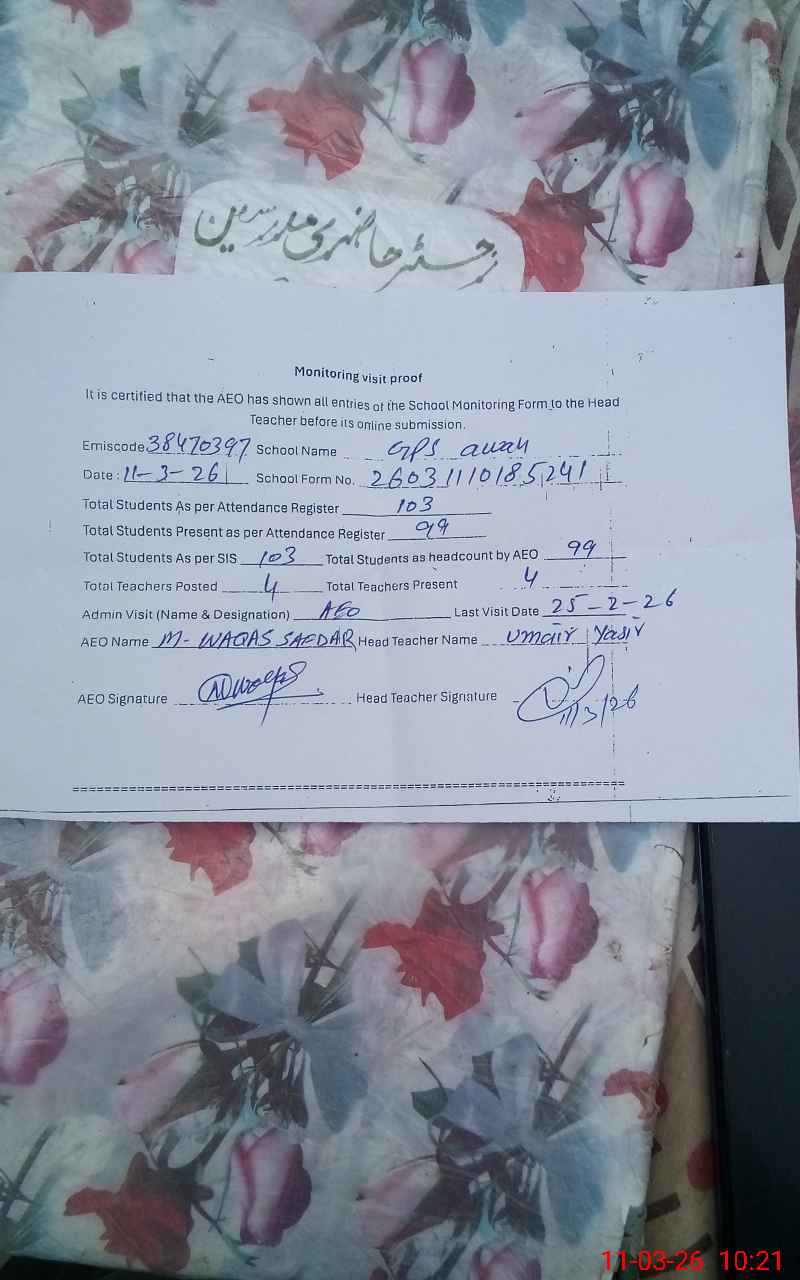 رجسٹر حاضری مدرسین
Monitoring visit proof
It is certified that the AEO has shown all entries of the School Monitoring Form to the Head
Teacher before its online submission.
Emiscode 38470397 School Name GPS awan
Date : 11-3-26 School Form No. 26031110185241
Total Students As per Attendance Register 103
Total Students Present as per Attendance Register 99
Total Students As per SIS 103 Total Students as headcount by AEO 99
Total Teachers Posted 4 Total Teachers Present 4
Admin Visit (Name & Designation) AEO Last Visit Date 25-2-26
AEO Name M- WAQAS SAFDAR Head Teacher Name Umair Yasir
AEO Signature Head Teacher Signature
11/3/26
11-03-26 10:21